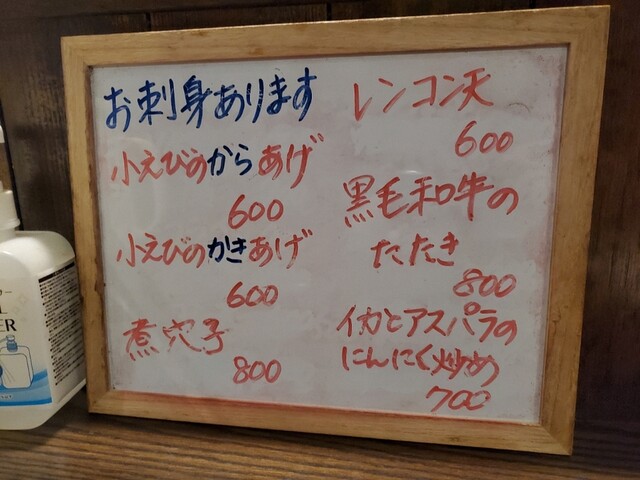 お刺身あります
小えびのからあげ
600
小えびのかきあげ
600
煮穴子
800
レンコン天
600
黒毛和牛の
たたき
800
イカとアスパラの
にんにく炒め
700